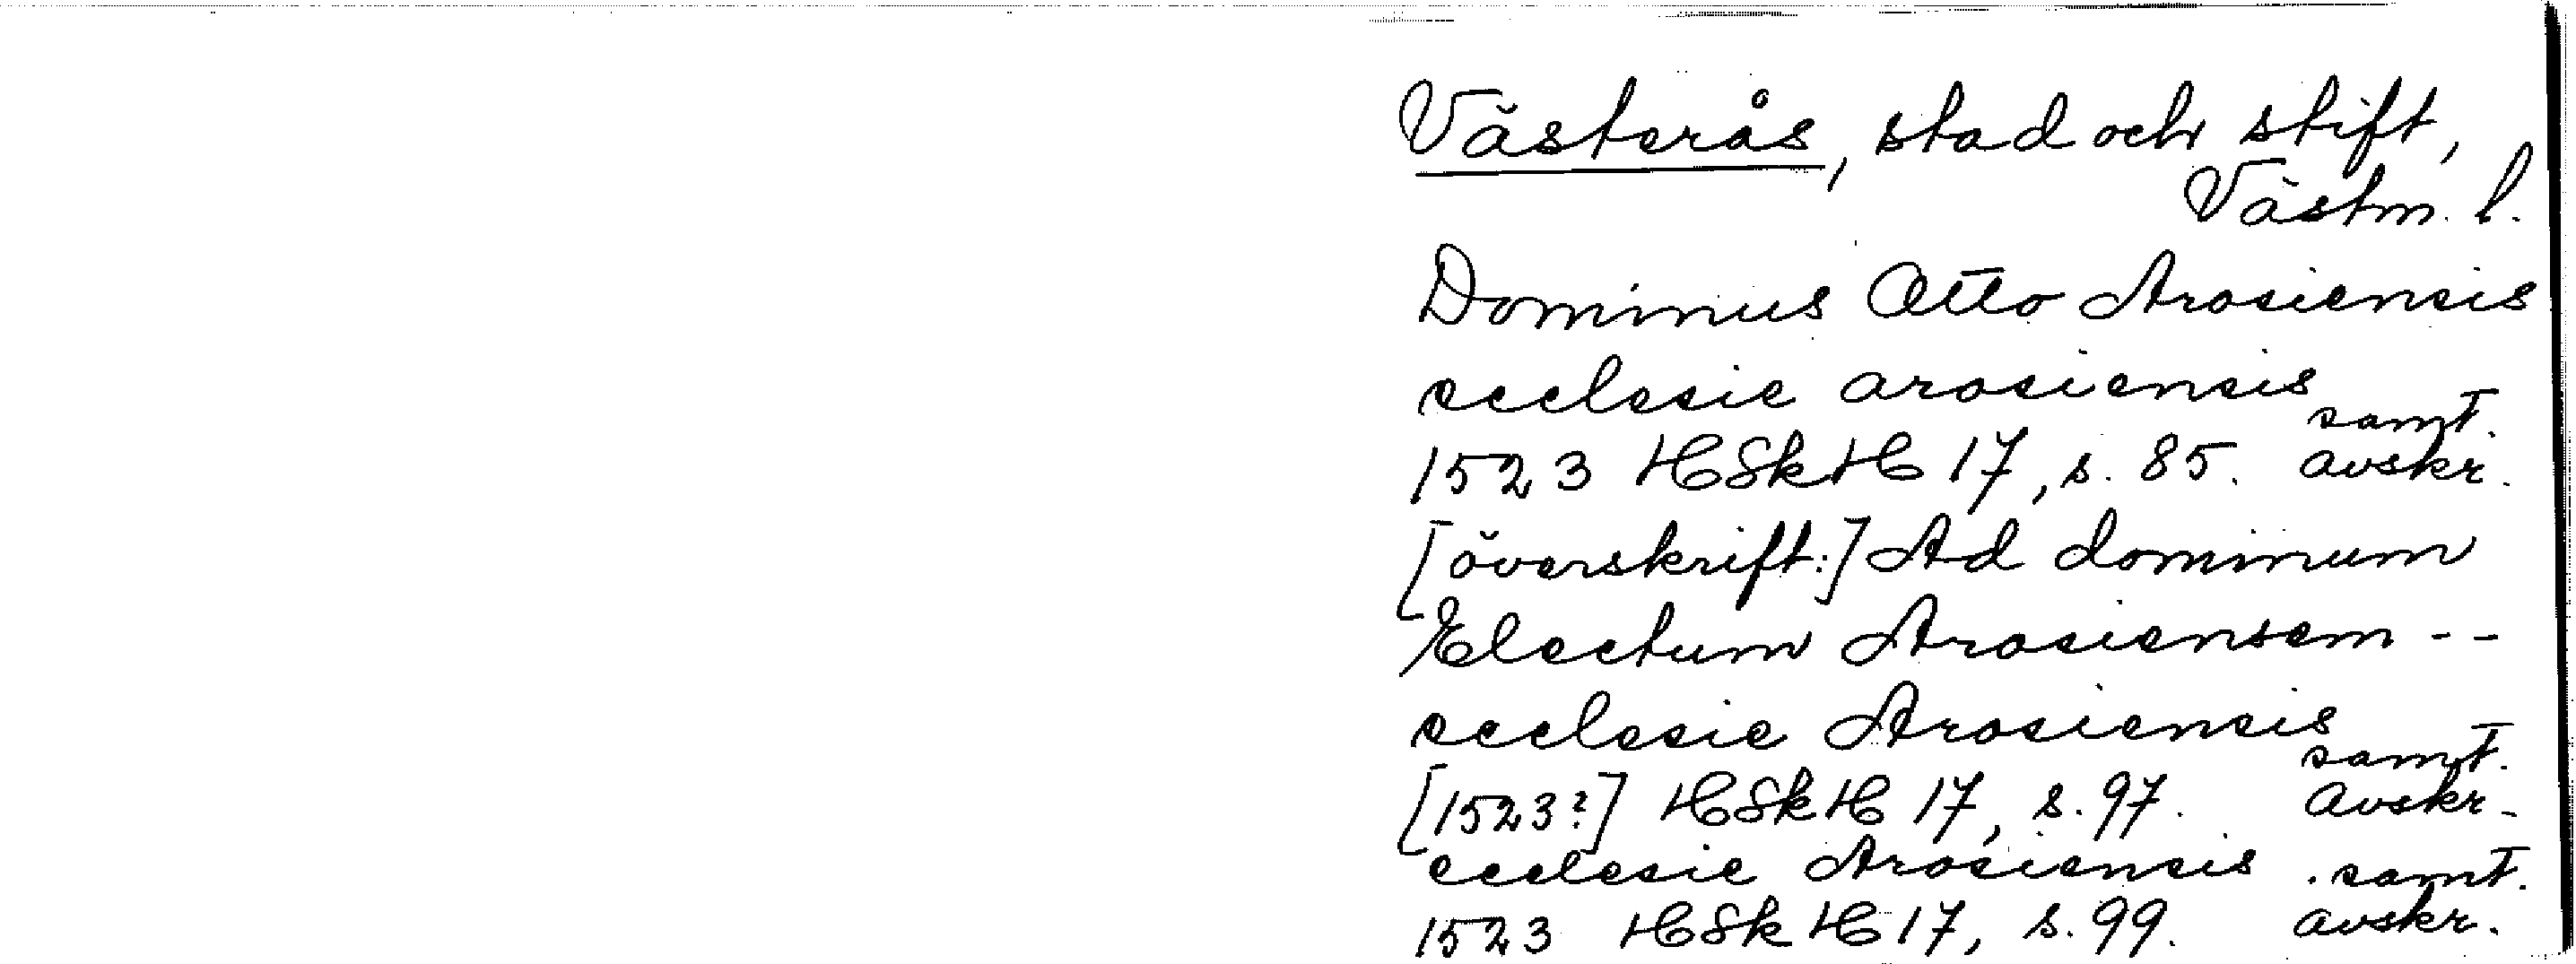 Västerås, stad och stift,
Västm. l.
Dominus Otto Arosiensis
ecclesie arosiensis
samt.
1523 HSkH 17, s. 85. avskr.
[överskrift:] Ad dominum
Electum Arosiensem --
ecclesie Arosiensis
samt.
[1523?] HSkH 17, s. 97. avskr.
ecclesie Arosiensis . samt.
1523 HSkH 17, s. 99. avskr.